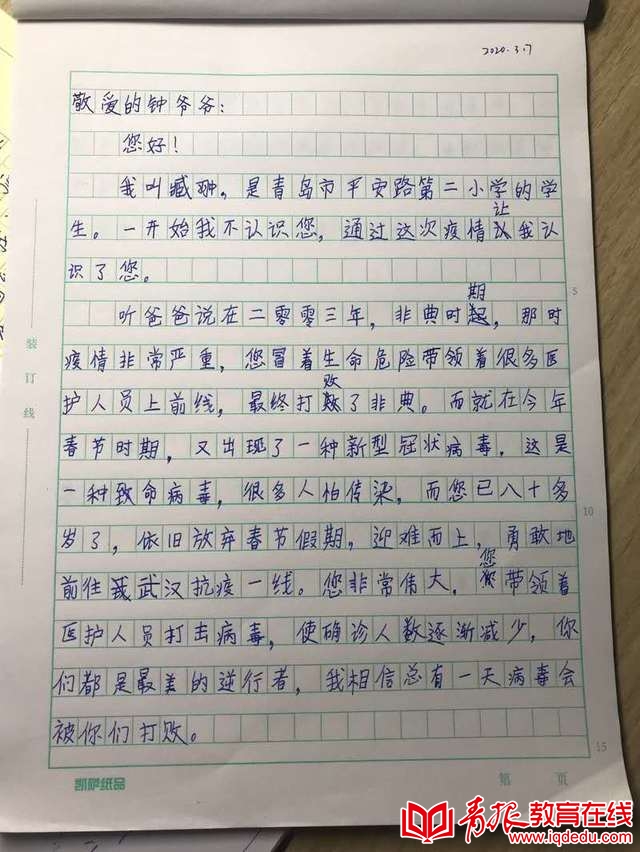 2020.3.7
敬爱的钟爷爷：
您好！
我叫臧翀，是青岛市平安路第二小学的学
生。一开始我不认识您，通过这次疫情让我认
识了您。
听爸爸说在二零零三年，非典时期，那时
疫情非常严重，您冒着生命危险带领着很多医
护人员上前线，最终打败了非典。而就在今年
春节时期，又出现了一种新型冠状病毒，这是
一种致命病毒，很多人怕传染，而您已八十多
岁了，依旧放弃春节假期，迎难而上，勇敢地
前往武汉抗疫一线。您非常伟大，您带领着
医护人员打击病毒，使确诊人数逐渐减少，你
们都是最美的逆行者，我相信总有一天病毒会
被你们打败。
装订线
5
10
15
凯萨纸品
第 页
青报教育在线
www.iqdedu.com